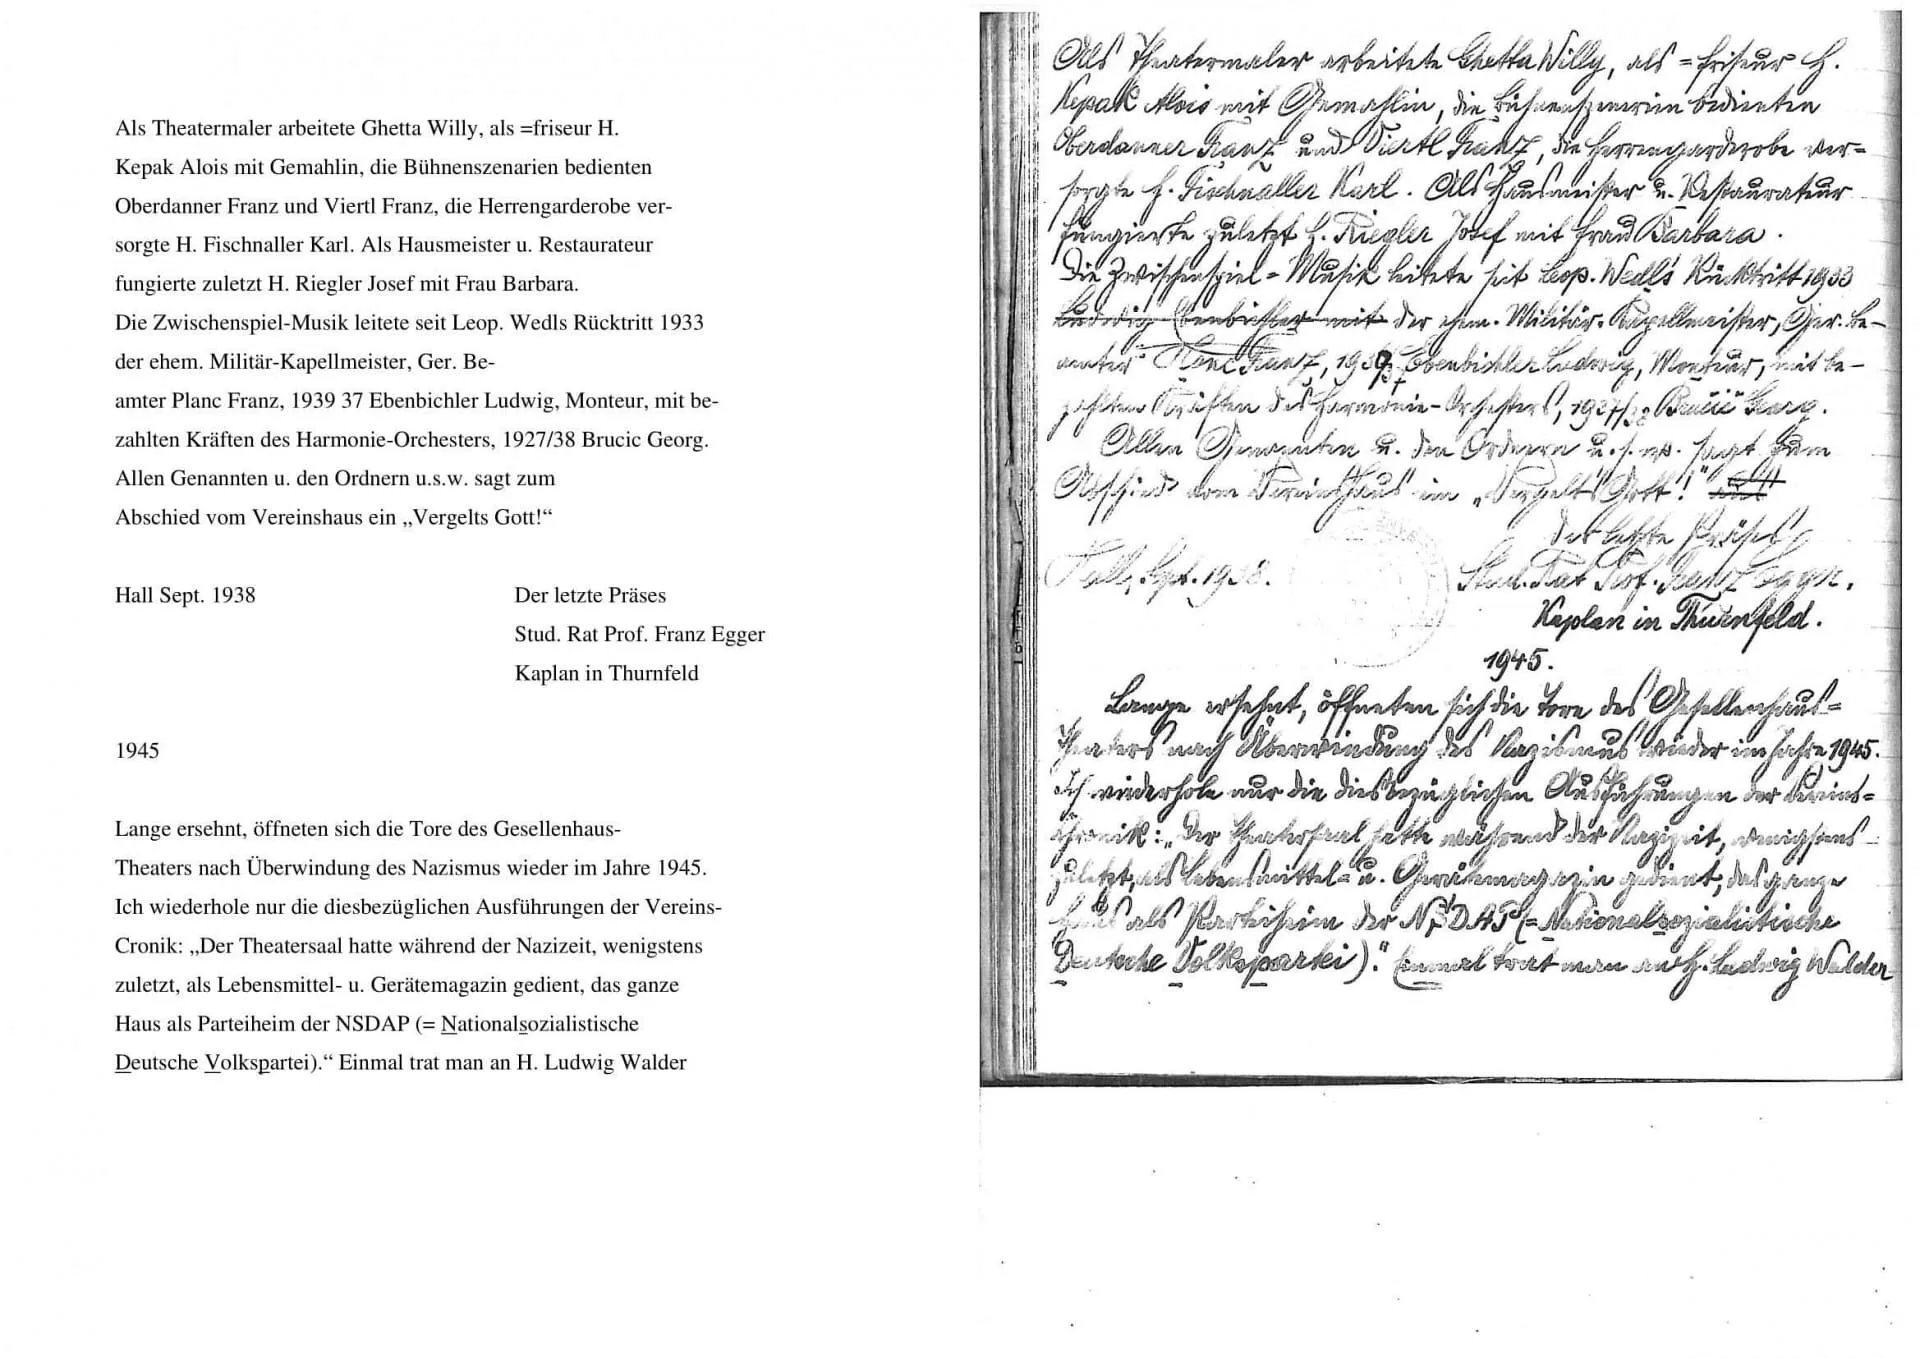 Als Theatermaler arbeitete Ghetta Willy, als =friseur H.
Kepak Alois mit Gemahlin, die Bühnenszenarien bedienten
Oberdanner Franz und Viertl Franz, die Herrengarderobe ver-
sorgte H. Fischnaller Karl. Als Hausmeister u. Restaurateur
fungierte zuletzt H. Riegler Josef mit Frau Barbara.
Die Zwischenspiel-Musik leitete seit Leop. Wedls Rücktritt 1933
der ehem. Militär-Kapellmeister, Ger. Be-
amter Planc Franz, 1939 37 Ebenbichler Ludwig, Monteur, mit be-
zahlten Kräften des Harmonie-Orchesters, 1927/38 Brucic Georg.
Allen Genannten u. den Ordnern u.s.w. sagt zum
Abschied vom Vereinshaus ein „Vergelts Gott!“
Hall Sept. 1938 Der letzte Präses
Stud. Rat Prof. Franz Egger
Kaplan in Thurnfeld
1945
Lange ersehnt, öffneten sich die Tore des Gesellenhaus-
Theaters nach Überwindung des Nazismus wieder im Jahre 1945.
Ich wiederhole nur die diesbezüglichen Ausführungen der Vereins-
Cronik: „Der Theatersaal hatte während der Nazizeit, wenigstens
zuletzt, als Lebensmittel- u. Gerätemagazin gedient, das ganze
Haus als Parteiheim der NSDAP (= Nationalsozialistische
Deutsche Volkspartei).“ Einmal trat man an H. Ludwig Walder
Als Theatermaler arbeitete Ghetta Willy, als =friseur H.
Kepak Alois mit Gemahlin, die Bühnenszenerien bedienten
Oberdanner Franz und Viertl Franz, die Herrengarderobe ver=
sorgte H. Fischnaller Karl. Als Hausmeister u. Restaurateur
fungierte zuletzt H. Riegler Josef mit Frau Barbara.
Die Zwischenspiel=Musik leitete seit Leop. Wedl's Rücktritt 1933
Ludwig Ebenbichler mit der ehem. Militär-Kapellmeister, Ger. Be-
amter Franz, 1937 Ebenbichler Ludwig, Monteur, mit be-
zahlten Kräften des Harmonie-Orchesters, 1937/38 Brucic Georg.
Allen Genannten u. den Ordnern u.s.w. sagt zum
Abschied vom Vereinshaus ein „Vergelts Gott!"
Der letzte Präses
Hall, Sept. 1938. Stud. Rat Prof. Franz Egger.
Kaplan in Thurnfeld.
1945.
Lange ersehnt, öffneten sich die Tore des Gesellenhaus=
Theaters nach Überwindung des Nazismus wieder im Jahre 1945.
Ich wiederhole nur die diesbezüglichen Ausführungen der Vereins=
chronik: „Der Theatersaal hatte während der Nazizeit, wenigstens
zuletzt, als Lebensmittel= u. Gerätemagazin gedient, das ganze
Haus als Parteiheim der NSDAP (= Nationalsozialistische
Deutsche Volkspartei)." Einmal trat man an H. Ludwig Walder